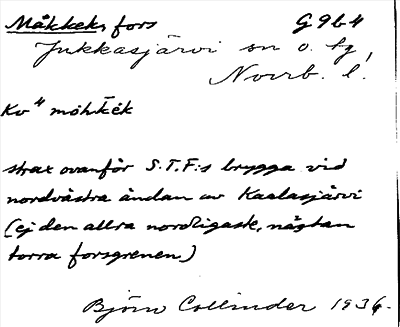 Måkkek fors G9b4
Jukkasjärvi sn o. tg,
Norrb. l.
Kv 4
strax ovanför S.T.F:s brygga vid
nordvästra ändan av Kaalasjärvi
(ej den allra nordligaste, nästan
torra forsgrenen)
Björn Collinder 1936.